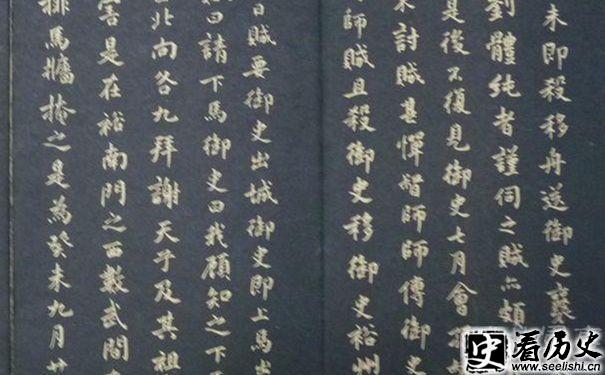 未即殺移舟送御史襄
劉體純者謹伺之賊亦頗
是後不復見御史七月會
討賊甚憚督師師傳御史
師賊且殺御史移御史裕州
日賊要御史出城御史即上馬
曰請下馬御史曰我願知之下
北向各九拜謝天子及其祖
害是在裕南門之西數武間
排馬牆掩之是為癸未九月廿
看历史
www.seelishi.cn